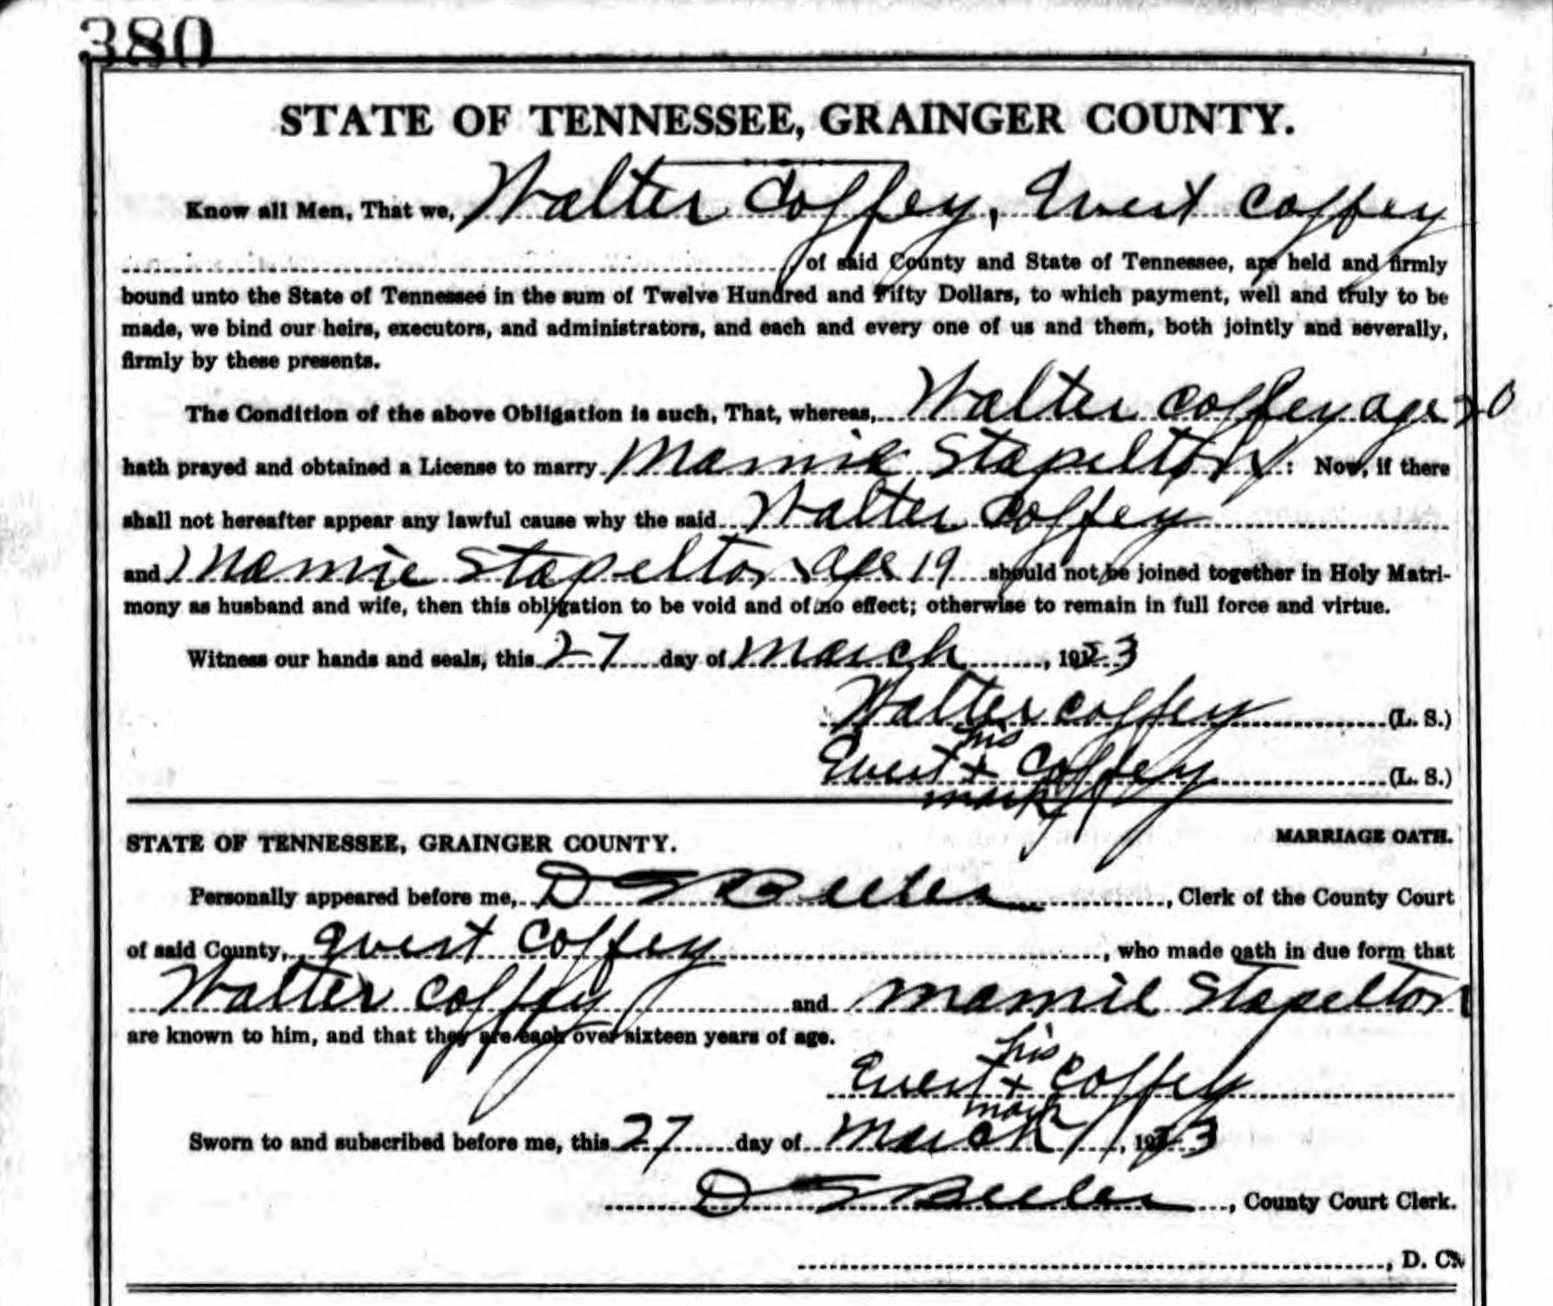 380
STATE OF TENNESSEE, GRAINGER COUNTY.
Know all Men, That we, Walter Coffey, Evert Coffey
of said County and State of Tennessee, are held and firmly
bound unto the State of Tennessee in the sum of Twelve Hundred and Fifty Dollars, to which payment, well and truly to be
made, we bind our heirs, executors, and administrators, and each and every one of us and them, both jointly and severally,
firmly by these presents.
The Condition of the above Obligation is such, That, whereas, Walter Coffey age 20
hath prayed and obtained a License to marry Mamie Stapelton : Now, if there
shall not hereafter appear any lawful cause why the said Walter Coffey
and Mamie Stapelton age 19 should not be joined together in Holy Matri-
mony as husband and wife, then this obligation to be void and of no effect; otherwise to remain in full force and virtue.
Witness our hands and seals, this 27 day of March, 1923
Walter Coffey (L. S.)
his
Evert x Coffey (L. S.)
mark
STATE OF TENNESSEE, GRAINGER COUNTY. MARRIAGE OATH.
Personally appeared before me, D Beeler, Clerk of the County Court
of said County, Evert Coffey, who made oath in due form that
Walter Coffey and Mamie Stapelton
are known to him, and that they are each over sixteen years of age.
his
Evert + Coffey
mark
Sworn to and subscribed before me, this 27 day of March, 1923
D Beeler, County Court Clerk.
, D. C.